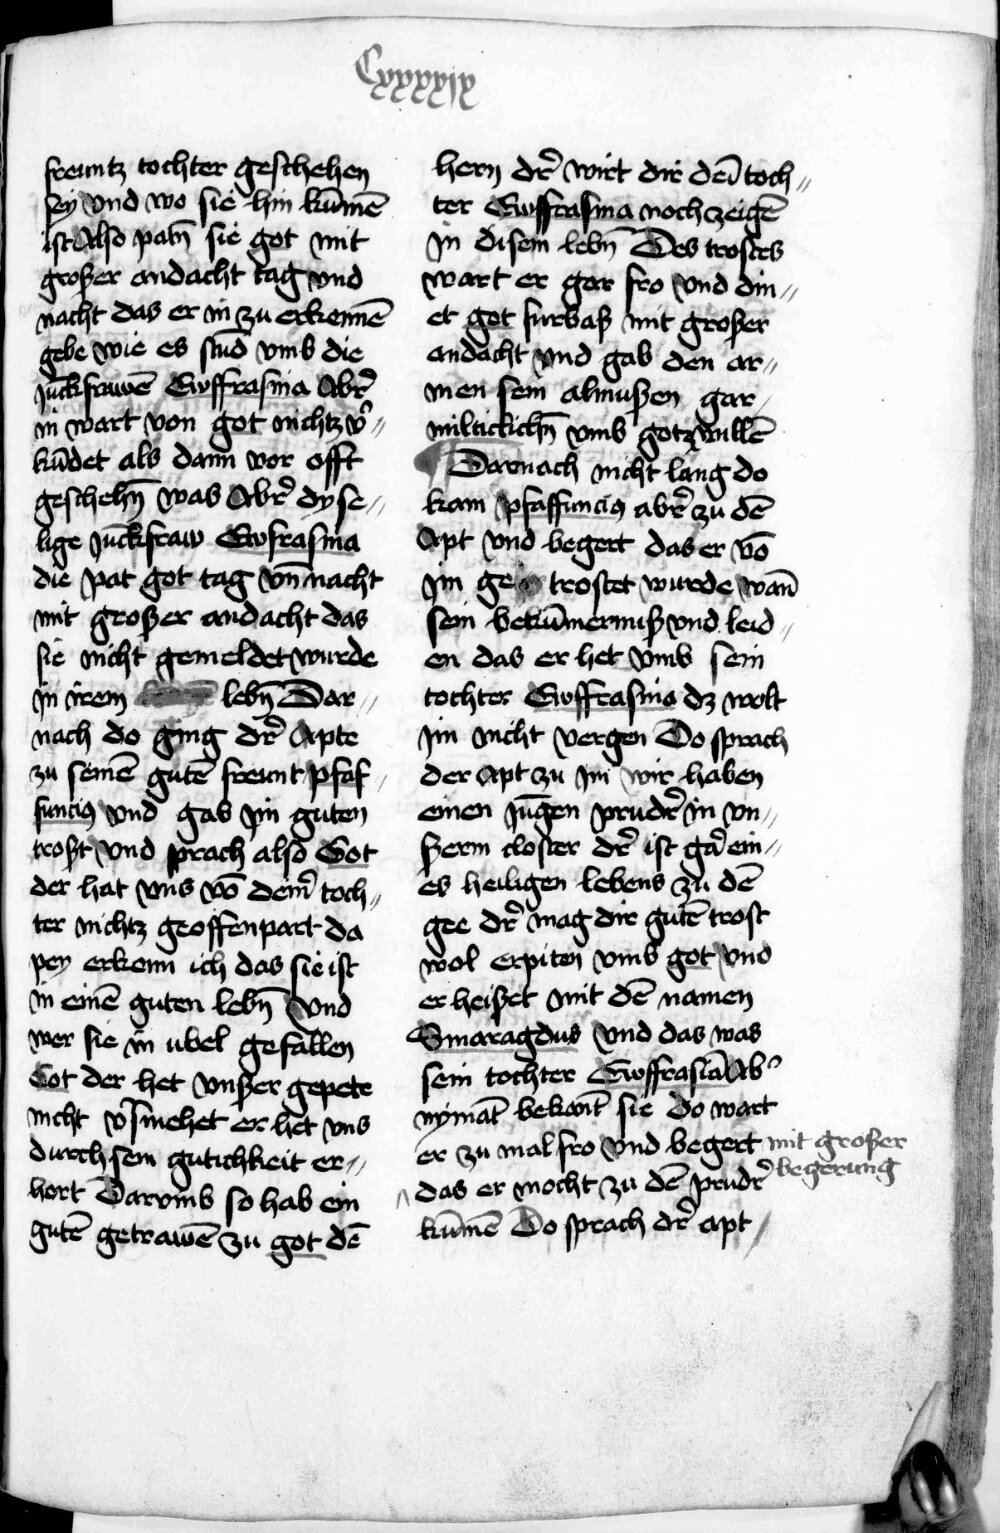 Cxxxxix
freuntz tochter geschehen
sey vnd wo sie hin kūmē
ist Also patn̄ sie got mit
großer andacht tag vnd
nacht das er in zu erkennē
gebe wie es stūd vmb die
Jūckfrawē Ewffrasina Abr̄
in wart von got nichtz v̄ //
kūdet als dann vor offt
geschehn̄ was Abr̄ dy se //
lige Jūckfraw Ewfrasina
die pat got tag vn̄ nacht
mit großer andacht das
sie nicht gemeldet wurde
in irem lebn̄ Dar //
nach do ging dr̄ Apte
zu seinē gutē freunt pfaf //
funciꝯ vnd gab im guten
trost vnd sprach also Got
der hat vns vō deinr̄ toch //
ter nichtz geoffenpart da
pey erkenn ich das sie ist
in einē guten lebn̄ Vnd
wer sie in ubel gefallen
Got der het vnßer gepete
nicht v̄smehet er het vns
durch sein gutichkeit er //
hort Darvmb so hab ein
gutē getrawē zu got dē
hern dr̄ wirt dir deī toch //
ter Ewffrasina noch zeigē
in disem lebn̄ Des trostes
wart er gar fro vnd din //
et got furbaß mit großer
andacht vnd gab den ar //
men sein almußen gar /
miltickichn̄ vmb gotz willē
Darnach nicht lang do
kam pfaffunciꝯ abr̄ zu dē
Apt vnd begert das er vō
im ge trostet wurde wan̄
sein bekūmernuß vnd leid //
en das er het vmb sein
tochter Ewffrasina dz wolt
im nicht vergen Do sprach
der Apt zu im wir haben
einen jūgen prudr̄ in vn //
ßerm closter dr̄ ist gar̄ ein //
es heiligen lebens zu dē
gee dr̄ mag dir gutē trost
wol erpiten vmb got vnd
er heißet mit dē namen
Smaragdus vnd das was
sein tochter Ewffrasiā Ab᷒
nymāt bekant sie do wart
er zu mal fro vnd begert mit großer
begerung
das er mocht zu dē prudr̄
kūmē Do sprach dr̄ apt /